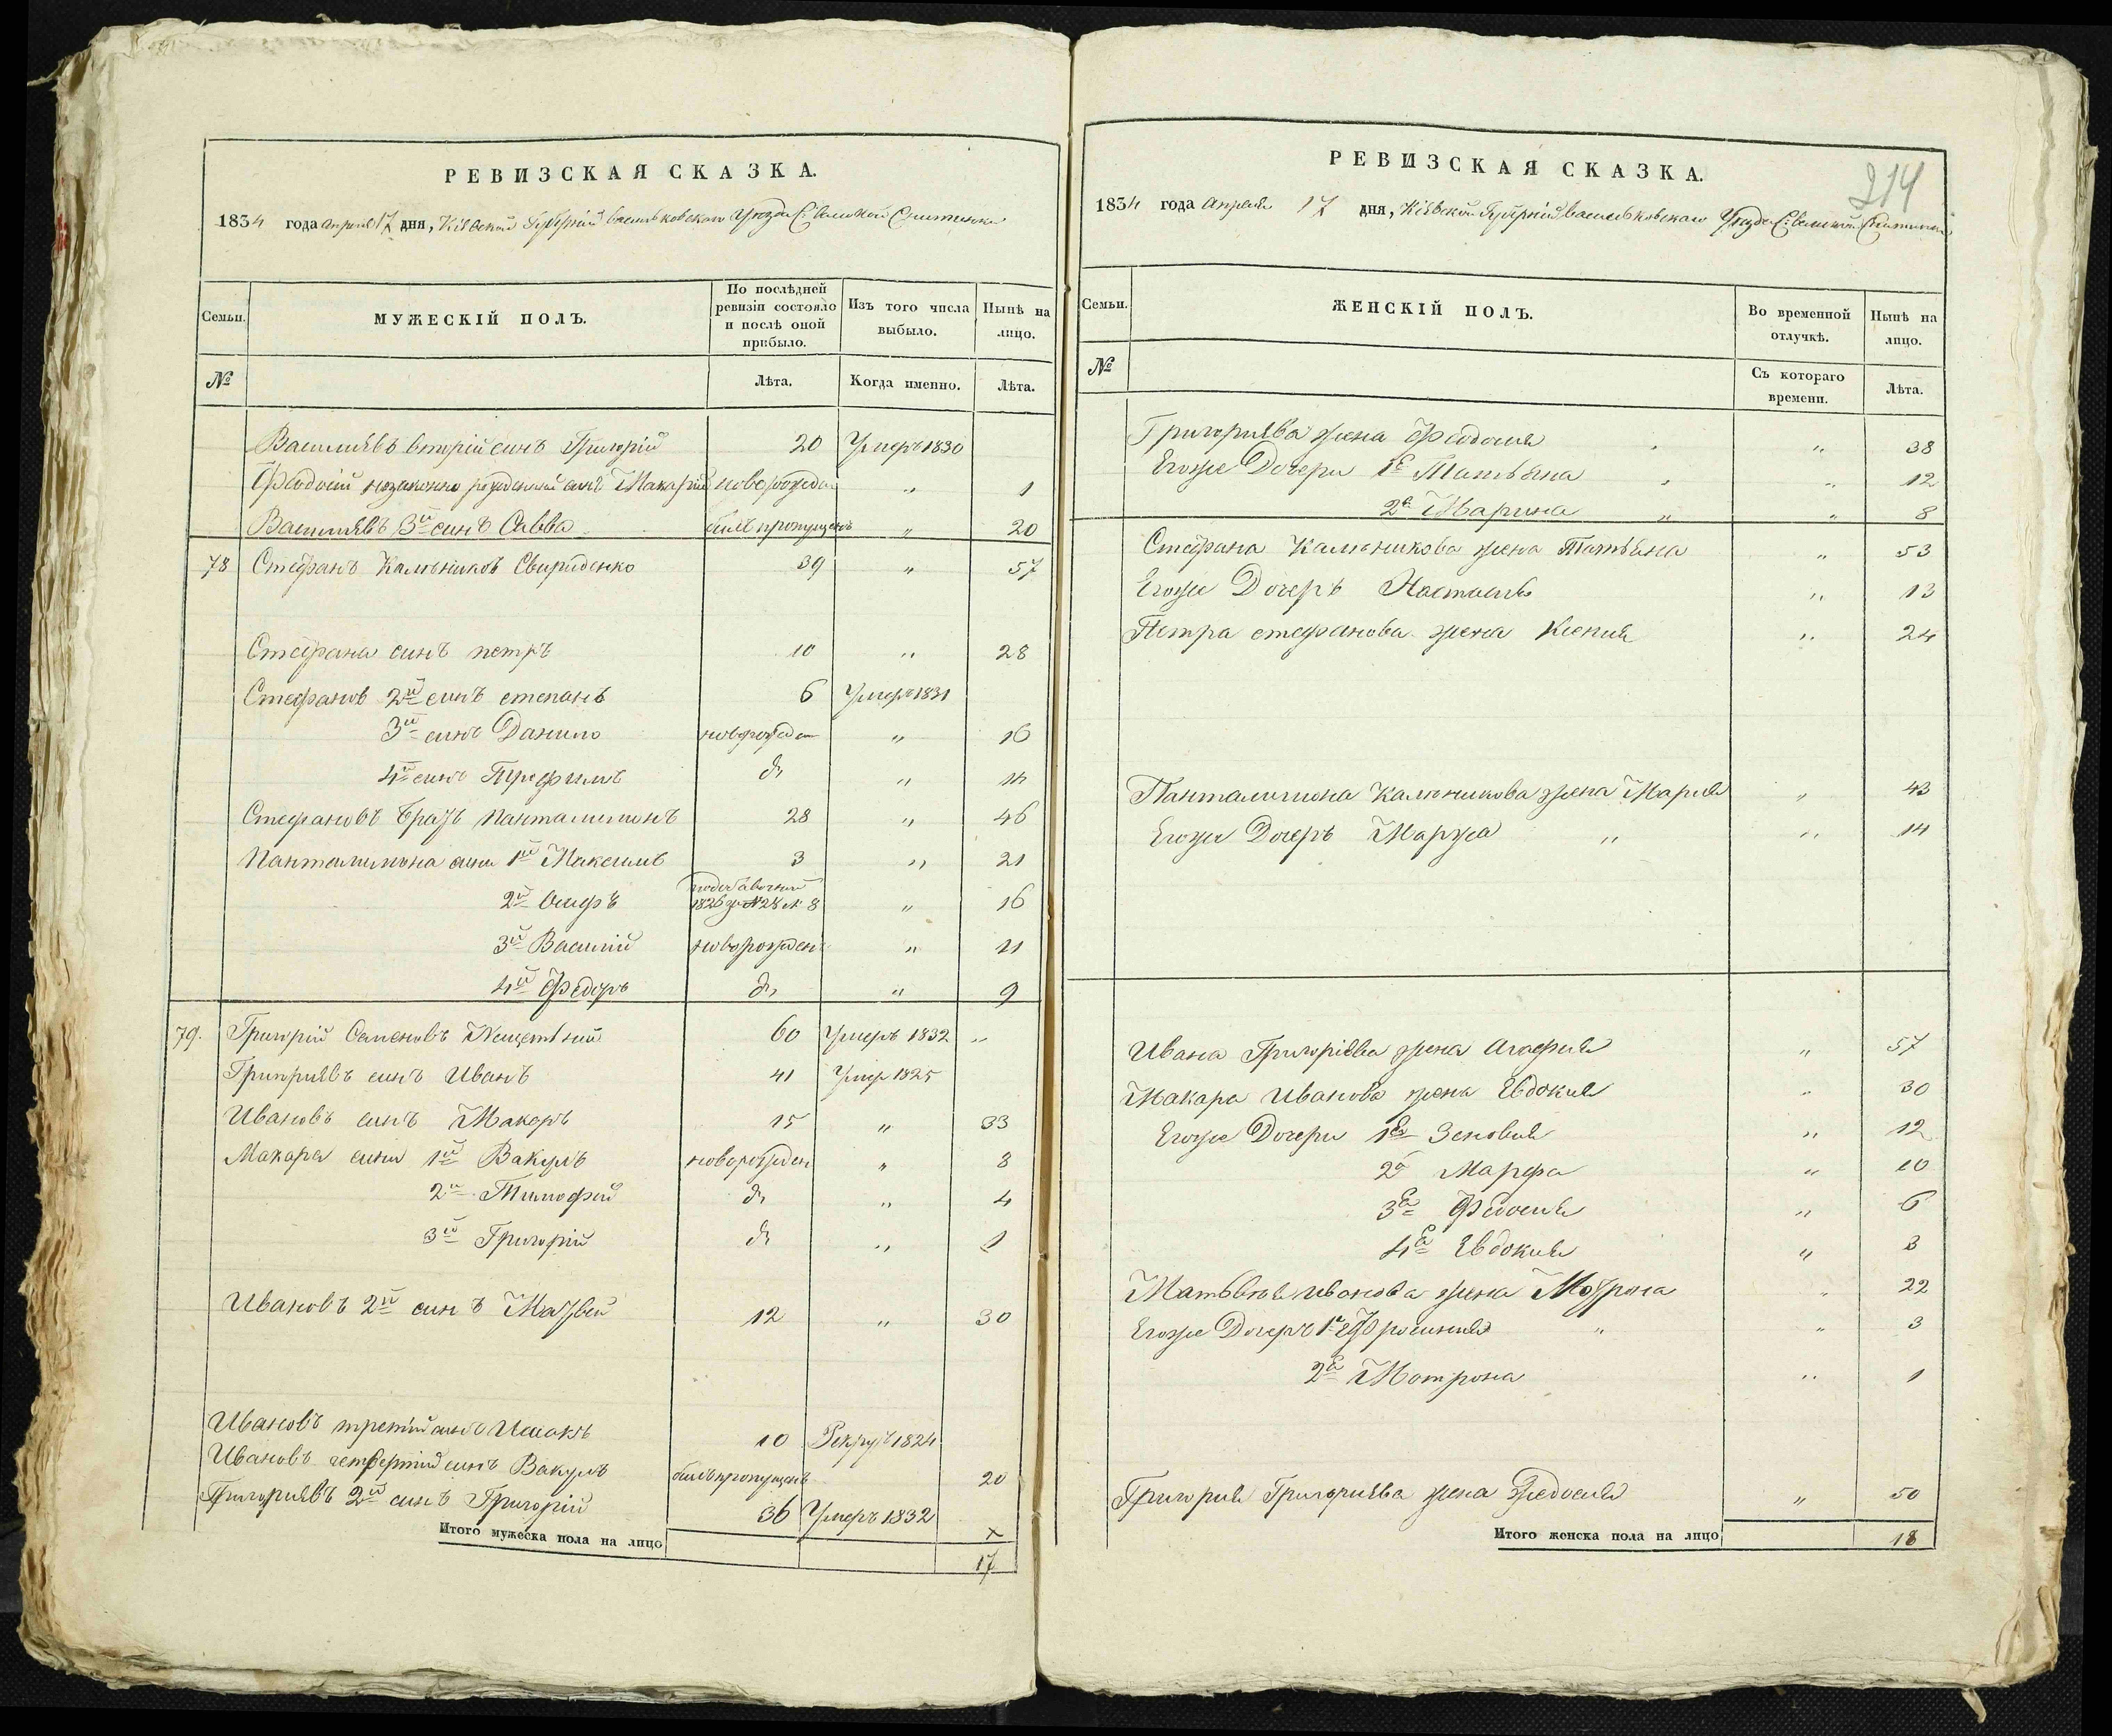 РЕВИЗСКАЯ СКАЗКА.
1834 года апреля 17 дня, Кіевской Губерніи васильковскаго Уезда С: великой Снитинки
Семьи.
МУЖЕСКІЙ ПОЛЪ.
По послѣдней ревизіи состояло и послѣ оной прибыло.
Изъ того числа выбыло.
Нынѣ на лицо.
№
Лѣта.
Когда именно.
Лѣта.
Василиевъ вторій синъ Григорій 20 Умеръ 1830
Феодосіи незаконно рожденный синъ Макарій новорожден „ 1
Василиевъ 3й синъ Савва билъ пропущенъ „ 20
78 Стефанъ Калениковъ Свириденко 39 „ 57
Стефана синъ петръ 10 „ 28
Стефанов 2й синъ степанъ 6 Умеръ 1831
3й синъ Данило новорожден „ 16
4й синъ Трофимъ д „ 14
Стефановъ Братъ Пантелимонъ 28 „ 46
Пантелимона сини 1й Максимъ 3 „ 21
2й Осифъ 1826 № 28 8 „ 16
3й Василій новорожден „ 11
4й Федоръ д „ 9
79. Григорій Семеновъ 60 Умеръ 1832 „
Григориевъ синъ Иванъ 41 Умер 1825
Ивановъ синъ Макаръ 15 „ 33
Макара сини 1й Вакулъ новорожден „ 8
2й Тимофей д „ 4
3й Григорій д „ 1
Ивановъ 2й синъ Матвей 12 „ 30
Ивановъ третій синъ Исакъ 10 Рекрутъ 1824
Ивановъ четвертій синъ Вакулъ билъ пропущенъ 20
Григориевъ 2й синъ Григорій 36 Умеръ 1832
Итого мужеска пола на лицо 17
214
РЕВИЗСКАЯ СКАЗКА.
1834 года апреля 17 дня, Кіевской Губерніи васильковскаго Уезда С: великой Снитинки
Семьи.
ЖЕНСКІЙ ПОЛЪ.
Во временной отлучкѣ.
Нынѣ на лицо.
№
Съ котораго времени.
Лѣта.
Григориева жена Феодосия „ 38
Егоже Дочери 1я Татьяна „ 12
2я Марина „ 8
Стефана Каленикова жена Татьяна „ 53
Егоже Дочеръ Настасия „ 13
Петра стефанова жена Ксения „ 24
Панталимона Каленикова жена Мария „ 43
Егоже Дочеръ Марфа „ 14
Ивана Григоріева жена Агафия „ 57
Макара Иванова жена Евдокия „ 30
Егоже Дочери 1я Зеновия „ 12
2я Марфа „ 10
3я Федосия „ 6
4я Евдокия „ 3
Матьвея иванова жена Мотрона „ 22
Егоже Дочеръ 1я Ефросиния „ 3
2я Мотрона „ 1
Григория Григориева жена Федосия „ 50
Итого женска пола на лицо 18